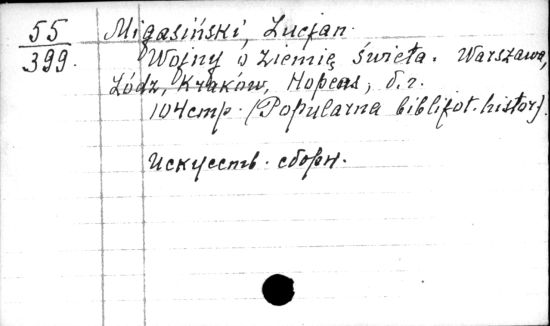 55
399.
Migasiński, Lucjan.
Wojny o ziemię święta. Warszawa,
Łódz, Kraków, Hopeas, б.г.
104стр. (Popularna bibljot. histor).
Искусств. сборн.